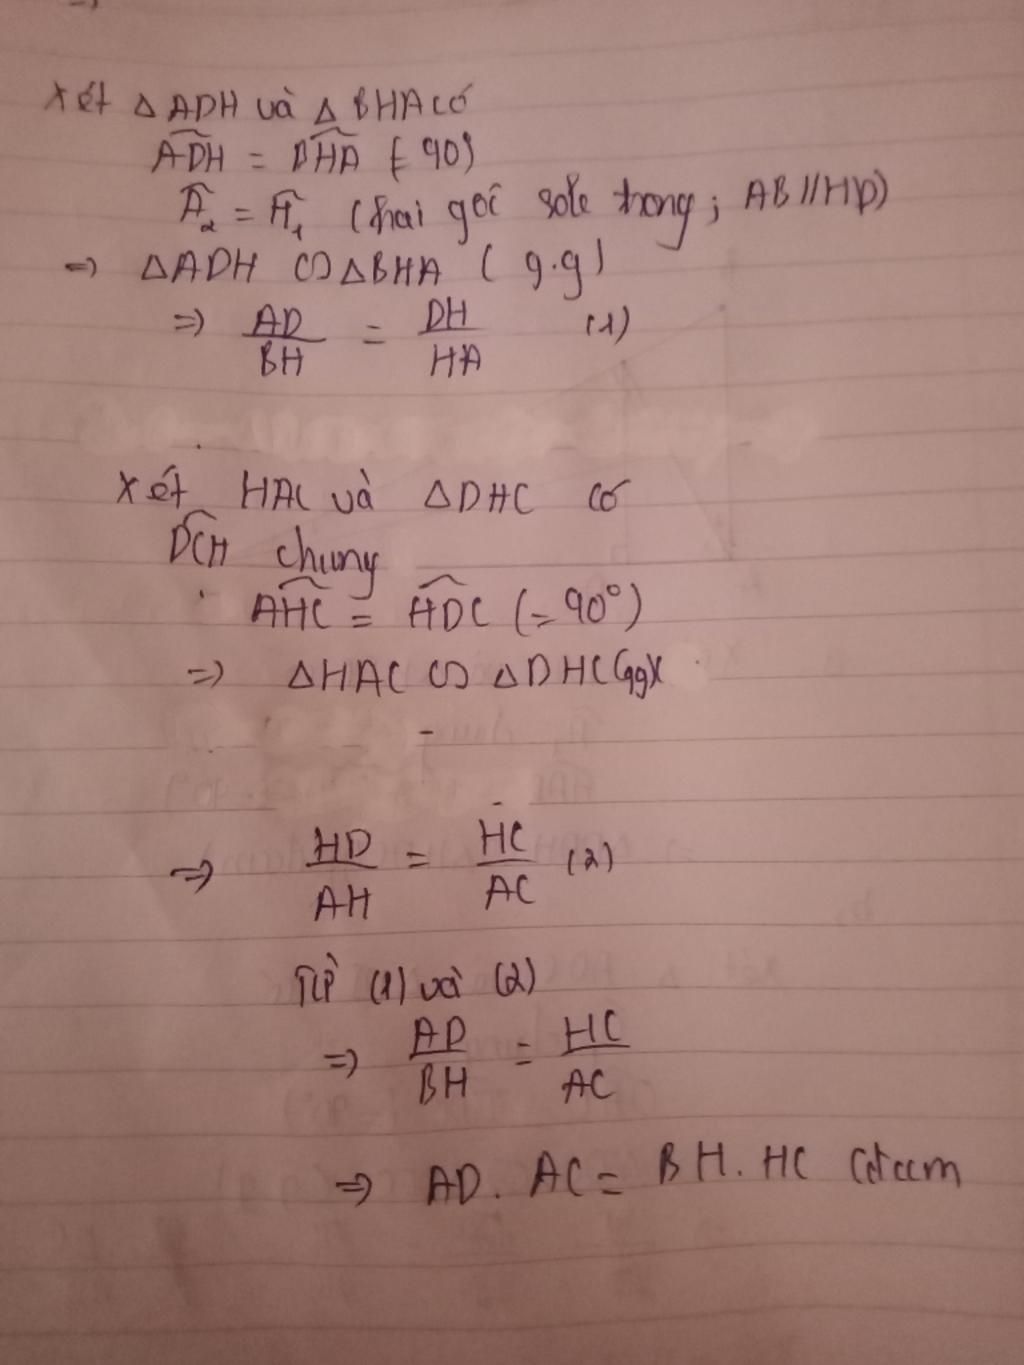 Xét △ADH và △BHA có
ADH = BHA (= 90)
A₂ = H₁ (hai góc sole trong; AB//HD)
=> △ADH ∽ △BHA ( g.g)
=> AD/BH = DH/HA (1)
Xét HAC và △DHC có
DCH chung
AHC = HDC (= 90°)
=> △HAC ∽ △DHC (gg)
=> HD/AH = HC/AC (2)
Từ (1) và (2)
=> AD/BH = HC/AC
=> AD. AC = BH. HC (đccm